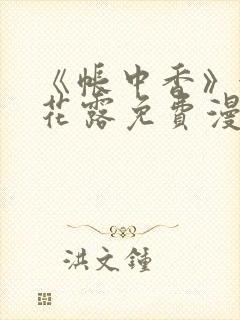 《帐中香》
花露免费漫
洪文钟